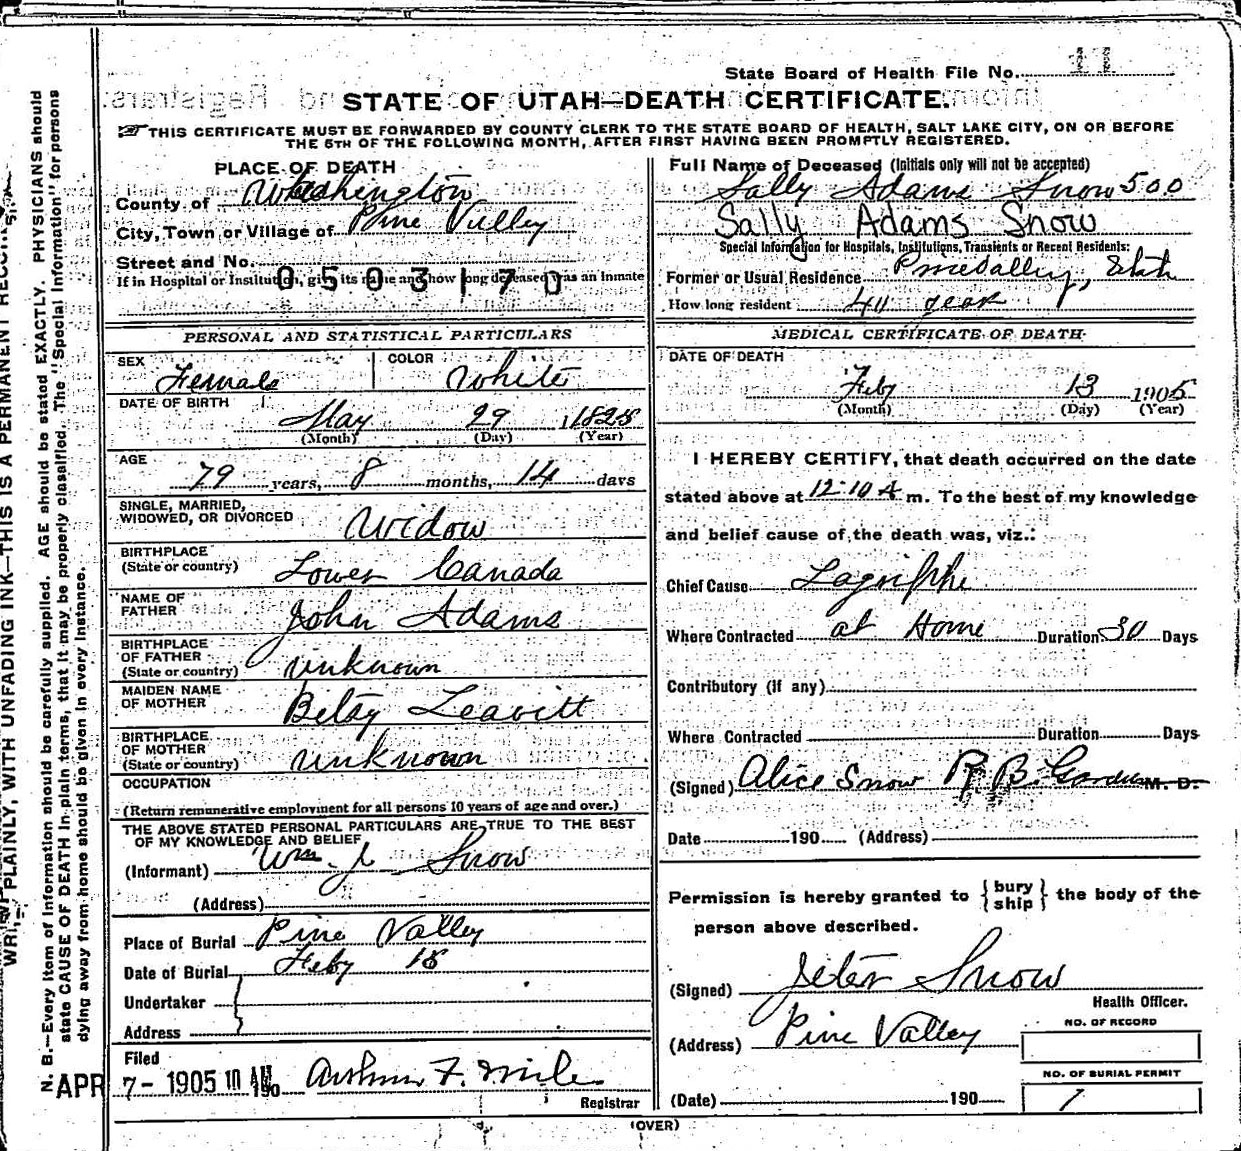 State Board of Health File No. 11
STATE OF UTAH—DEATH CERTIFICATE.
THIS CERTIFICATE MUST BE FORWARDED BY COUNTY CLERK TO THE STATE BOARD OF HEALTH, SALT LAKE CITY, ON OR BEFORE
THE 5TH OF THE FOLLOWING MONTH, AFTER FIRST HAVING BEEN PROMPTLY REGISTERED.
PLACE OF DEATH
County of Washington
City, Town or Village of Pine Valley
Street and No.
If in Hospital or Institution, give its name and how long deceased was an inmate
0503170
Full Name of Deceased (Initials only will not be accepted)
Sally Adams Snow 500
Sally Adams Snow
Special Information for Hospitals, Institutions, Transients or Recent Residents:
Former or Usual Residence Pine Valley, Utah
How long resident 40 years
PERSONAL AND STATISTICAL PARTICULARS
SEX Female COLOR White
DATE OF BIRTH May 29 1825
(Month) (Day) (Year)
AGE 79 years, 8 months, 14 days
SINGLE, MARRIED,
WIDOWED, OR DIVORCED Widow
BIRTHPLACE
(State or country) Lower Canada
NAME OF
FATHER John Adams
BIRTHPLACE
OF FATHER
(State or country) unknown
MAIDEN NAME
OF MOTHER Betsy Leavitt
BIRTHPLACE
OF MOTHER
(State or country) unknown
OCCUPATION
(Return remunerative employment for all persons 10 years of age and over.)
THE ABOVE STATED PERSONAL PARTICULARS ARE TRUE TO THE BEST
OF MY KNOWLEDGE AND BELIEF
(Informant) Wm. J. Snow
(Address)
Place of Burial Pine Valley
Date of Burial Feby 15
Undertaker
Address
Filed
APR 7- 1905 10 AM 190 Arthur F. Miles
Registrar
MEDICAL CERTIFICATE OF DEATH
DATE OF DEATH
Feby 13 1905
(Month) (Day) (Year)
I HEREBY CERTIFY, that death occurred on the date
stated above at 12-10 A m. To the best of my knowledge
and belief cause of the death was, viz.:
Chief Cause Lagrippe
Where Contracted at Home Duration 30 Days
Contributory (if any)
Where Contracted Duration Days
(Signed) Alice Snow R. B. Gardner M. D.
Date 190 (Address)
Permission is hereby granted to {bury
ship} the body of the
person above described.
(Signed) Jeter Snow
Health Officer.
(Address) Pine Valley
NO. OF RECORD
NO. OF BURIAL PERMIT
(Date) 190 1
(OVER)
WRITE PLAINLY, WITH UNFADING INK—THIS IS A PERMANENT RECORD
N. B.—Every item of information should be carefully supplied. AGE should be stated EXACTLY. PHYSICIANS should
state CAUSE OF DEATH in plain terms, that it may be properly classified. The "Special Information" for persons
dying away from home should be given in every instance.